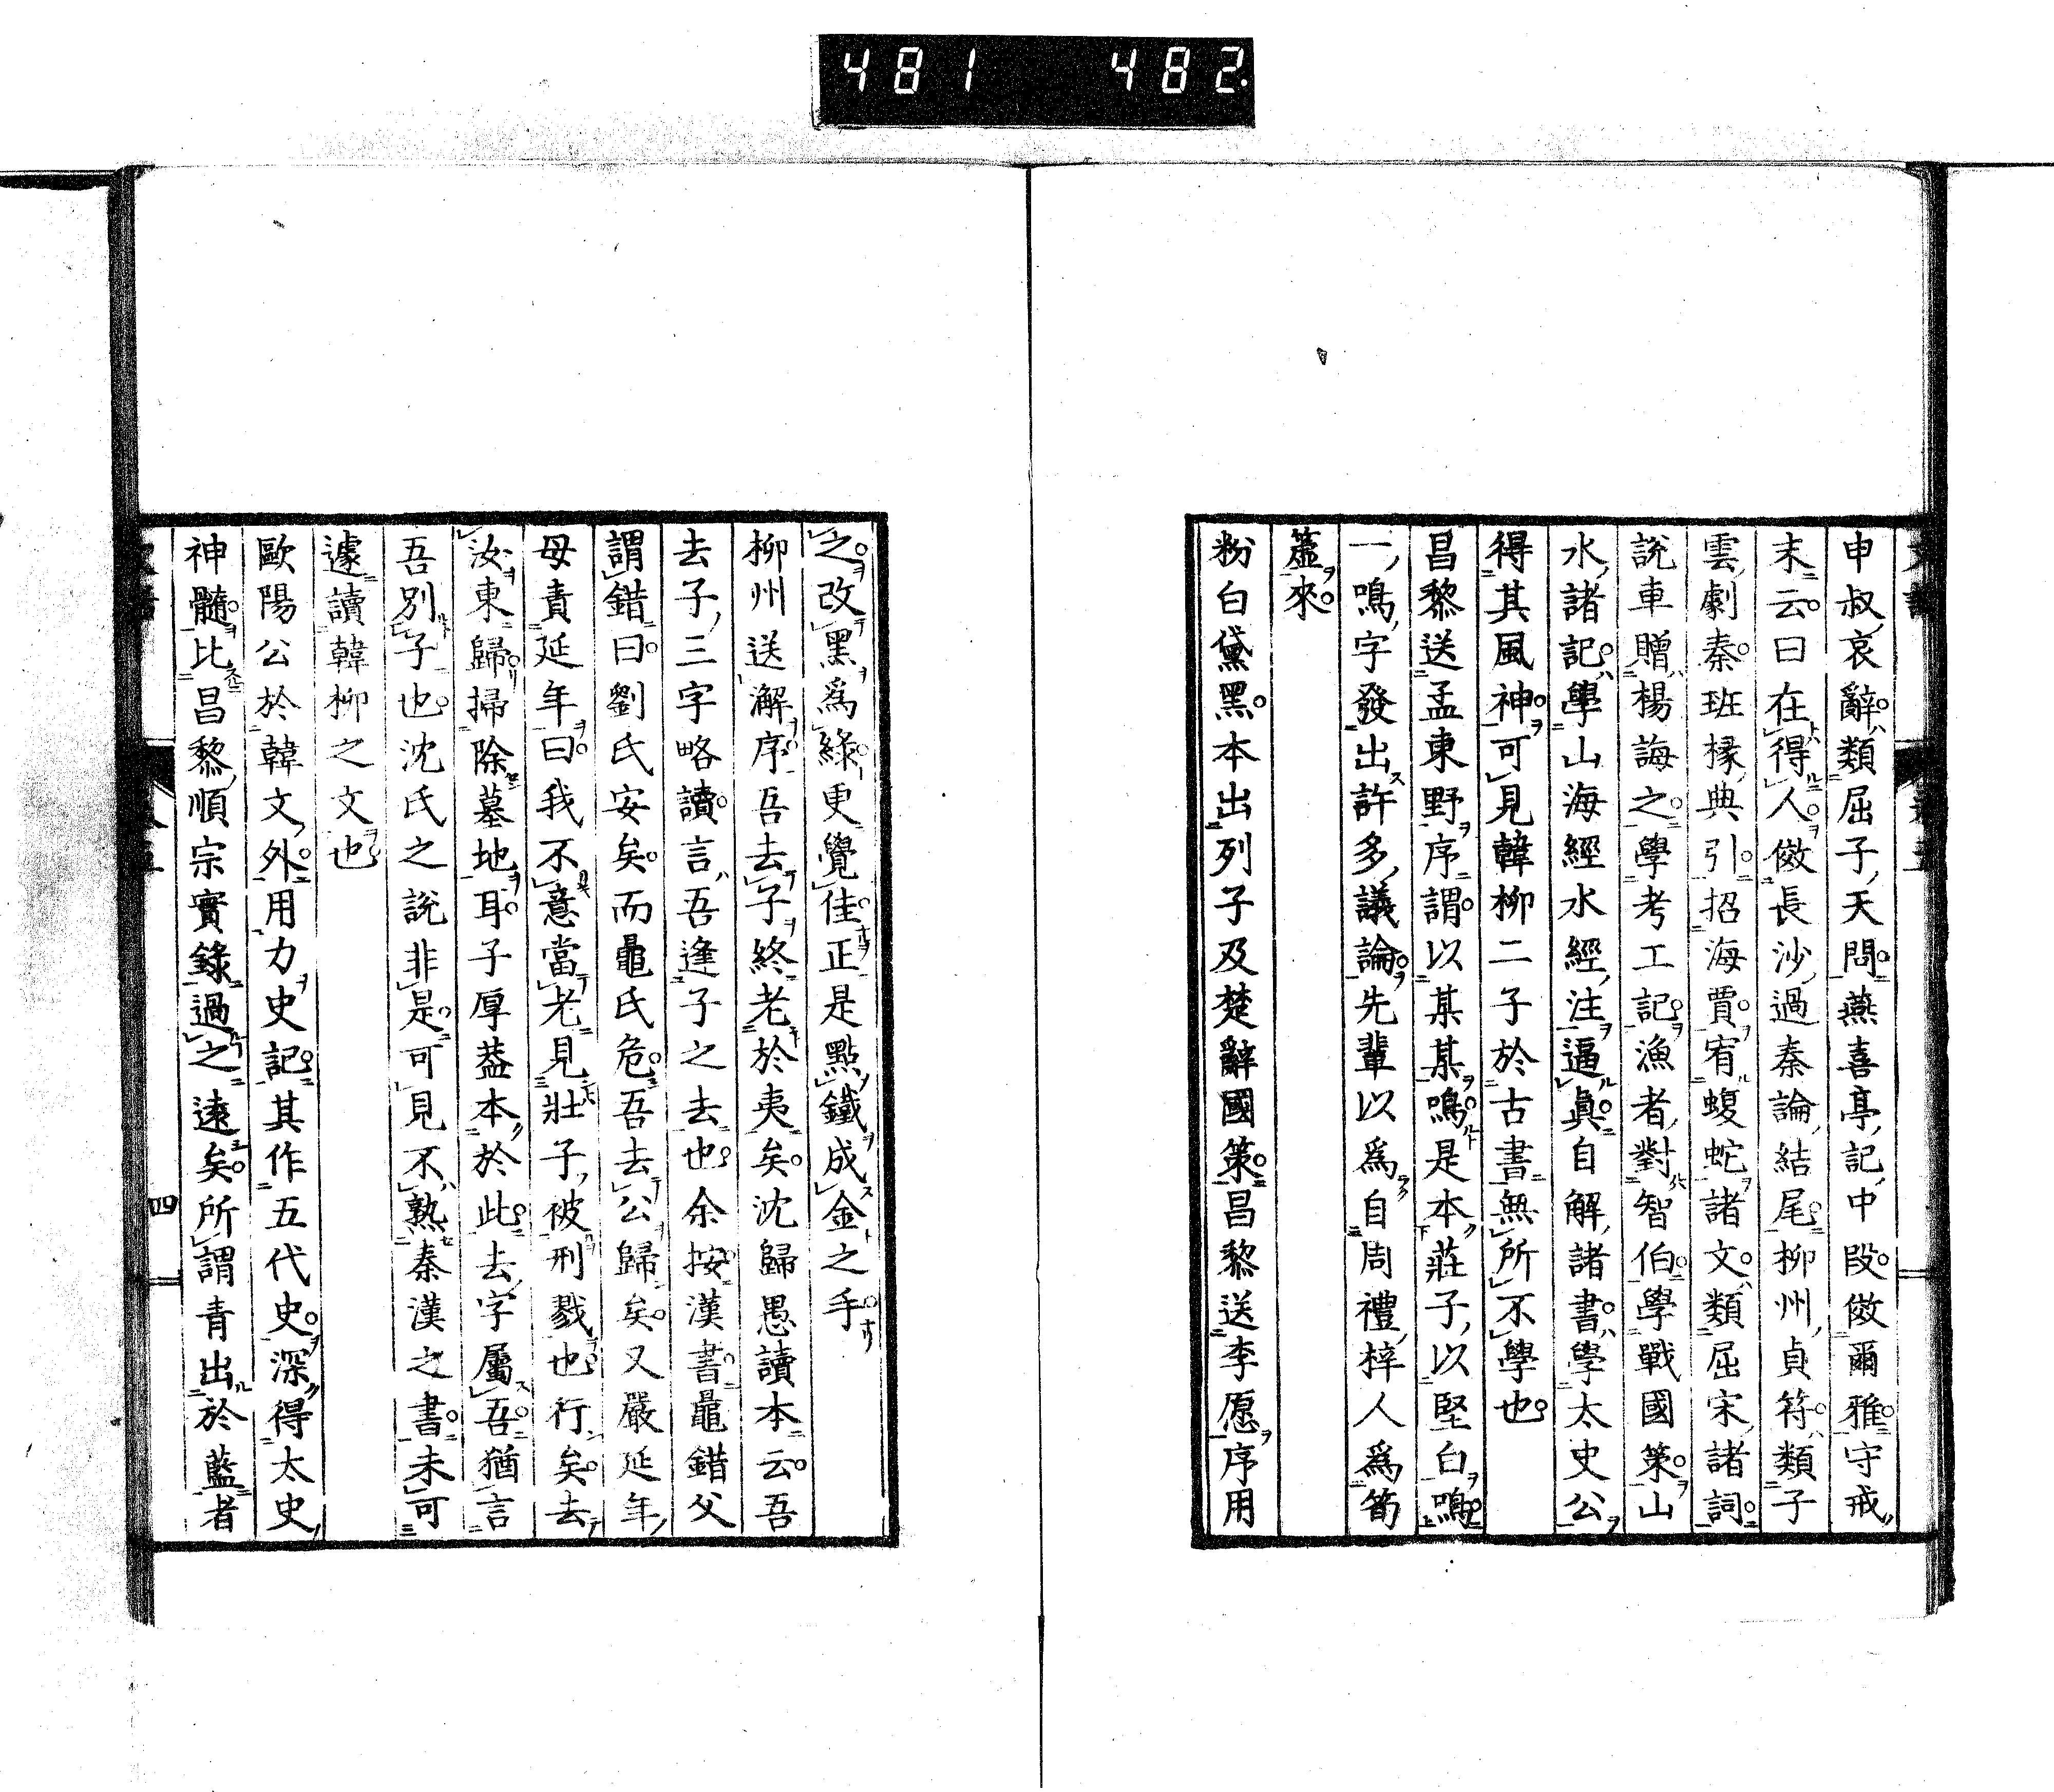 481 482
申叔哀辭類屈子天問燕喜亭記中段傚爾雅守戒
末云曰在得人傚長沙過秦論結尾柳州貞符類子
雲劇秦班椽典引招海賈宥蝮蛇諸文類屈宋諸詞
説車贈楊誨之學考工記漁者對智伯學戰國策山
水諸記學山海經水經注逼眞自解諸書學太史公
得其風神可見韓柳二子於古書無所不學也
昌黎送孟東野序謂以某某鳴是本莊子以堅白鳴
一鳴字發出許多議論先輩以爲自周禮梓人爲筍
簴來
粉白黛黑本出列子及楚辭國策昌黎送李愿序用
之改黑爲綠更覺佳正是點鐵成金之手
柳州送澥序吾去子終老於夷矣沈歸愚讀本云吾
去子三字略讀言吾逢子之去也余按漢書鼂錯父
謂錯曰劉氏安矣而鼂氏危吾去公歸矣又嚴延年
母責延年曰我不意當老見壯子被刑戮也行矣去
汝東歸掃除墓地耳子厚葢本於此去字屬吾猶言
吾別子也沈氏之說非是可見不熟秦漢之書未可
遽讀韓柳之文也
歐陽公於韓文外用力史記其作五代史深得太史
神髓比昌黎順宗實錄過之遠矣所謂青出於藍者
四